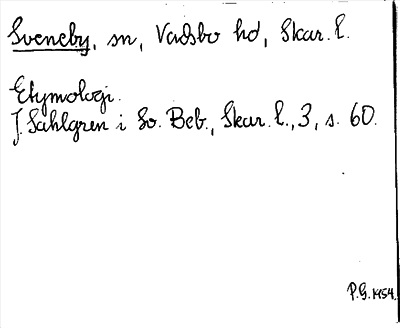 Sveneby, sn, Vadsbo hd, Skar. l.
Etymologi.
J. Sahlgren i Sv. Beb., Skar. l., 3, s. 60.
P.G. 1954.